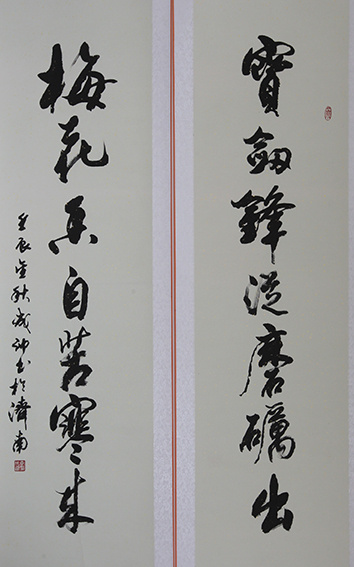 寶劍鋒從磨礪出
梅花香自苦寒來
壬辰金秋成神書於濟南